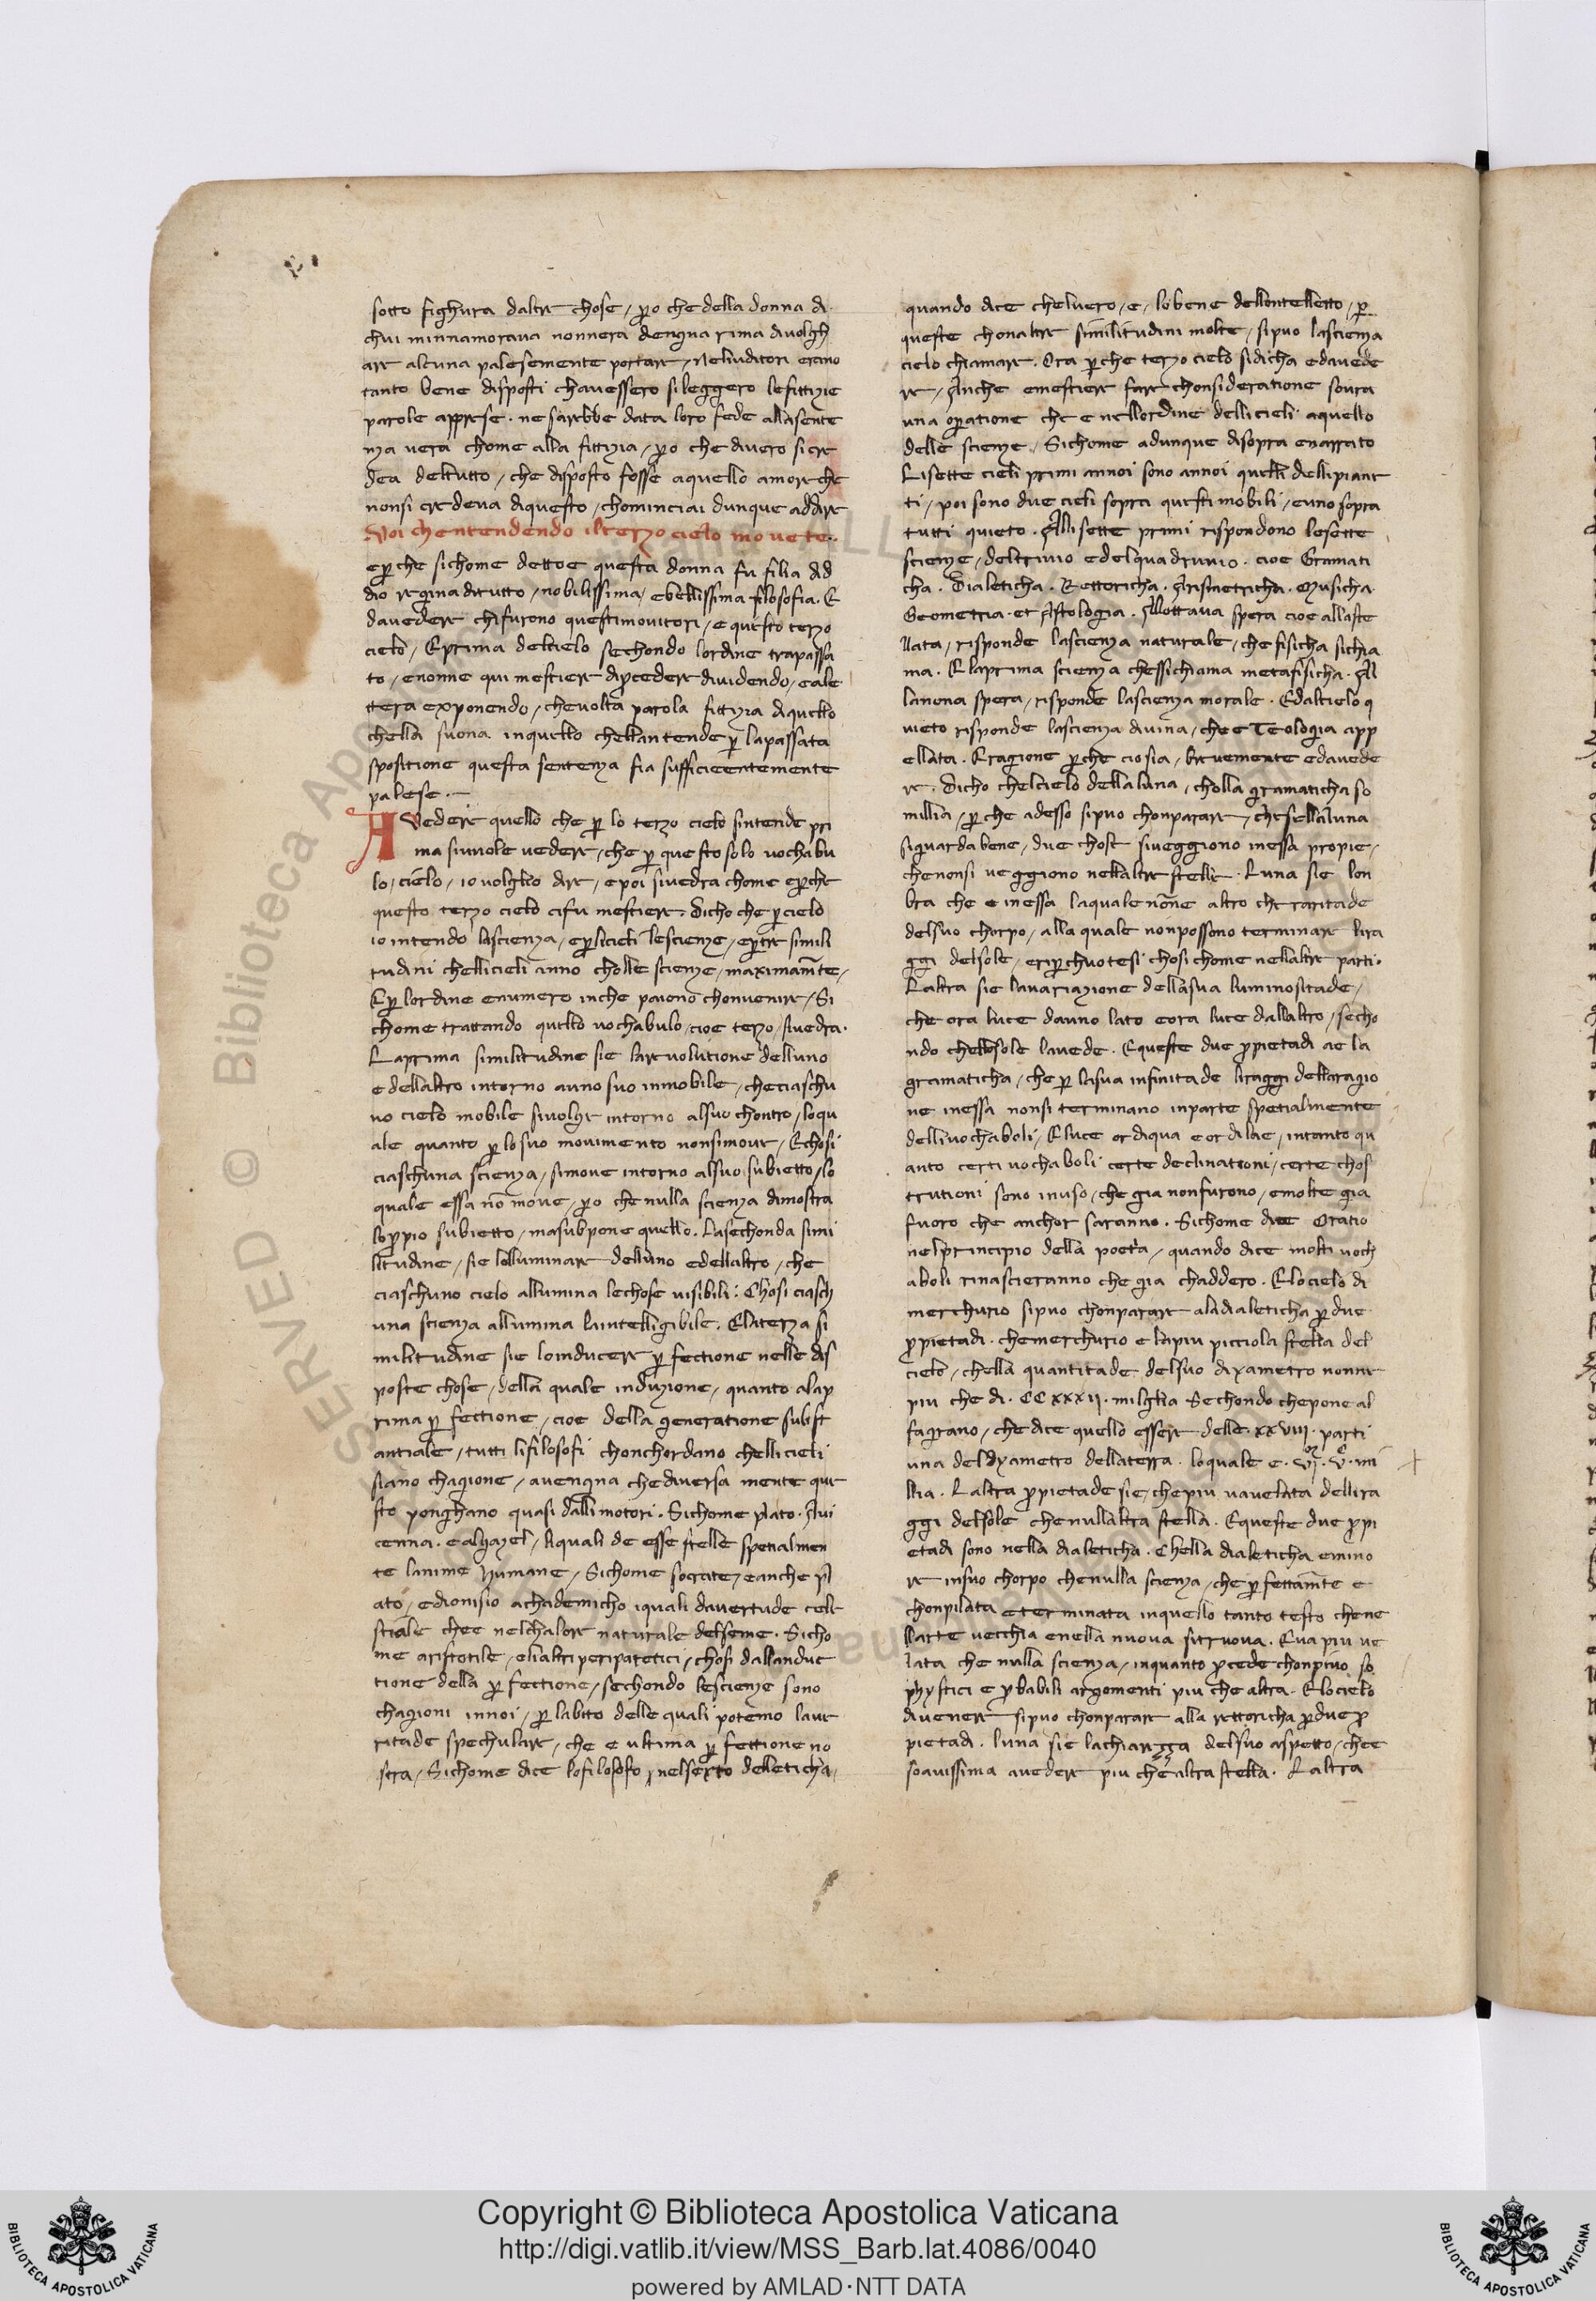 sotto fighura daltre chose, pero che della donna di
chui minnamorava nonnera dengna rima divolgh
are alcuna palesemente portare, neliuditori erano
tanto bene disposti chavessero sileggero lefittizie
parole apprese. ne sarebbe data loro fede allasente
nza vera chome alla fittizia, pero che divero sicre
dea deltutto, che disposto fosse aquello amore che
nonsi credeva diquesto, chominciai dunque addire
Voi chentendendo ilterzo cielo movete..
e perche sichome dettoe questa donna fu filia did
dio regina ditutto, nobilissima, ebellissima filosofia. E
davedere chifurono questimovitori, e questo terzo
cielo, Eprima delcielo sechondo lordine trapassa
to, enonne qui mestiere diprocedere dividendo, eale
ttera exponendo, chevolta parola fittizia diquello
chella suona inquello chellantende per lapassata
spositione questa sentenza fia sufficieentemente
palese.
A Vedere quello che per lo terzo cielo sintende pri
ma sivuole vedere, che per questo solo vochabu
lo, cielo, io volglio dire, epoi sivedra chome eperche
questo terzo cielo cifu mestiere. Dicho che percielo
io intendo lascienza, eperlicieli lescienze, epertre simili
tudini chellicieli anno cholle scienze, maximamēte,
Eper lordine enumero inche paiono chonvenire, Si
chome trattando quello vochabulo, cioe terzo, sivedra.
Laprima similitudine sie larevolutione delluno
e dellaltro intorno auno suo inmobile, checiaschu
no cielo mobile sivolge intorno alsuo chontro, loqu
ale quanto per losuo movimento nonsimove, Echosi
ciaschuna scienza, simove intorno alsuo subietto, lo
quale essa nō move, pero che nulla scienza dimostra
lopropio subietto, masubpone quello. Lasechonda simi
litudine, sie lolluminare delluno edellaltro, che
ciaschuno cielo allumina lechose visibili: Chosi ciasch
una scienza allumina laintelligibile. Elaterza si
militudine sie loinducere perfectione nelle dis
poste chose, della quale induzione, quanto alap
rima perfectione, cioe della generatione subst
antiale, tutti lifilosofi chonchordano chellicieli
siano chagione, avengna chediversa mente que
sto ponghano quasi dalli motori. Sichome plato. Avi
cenna. ealgazel, liquali de esse stelle spetialmen
te lanime humane, Sichome socrate, eanche pl
ato, edionisio achademicho iquali davertude cele
stiale chee nelchalore naturale delseme. Sicho
me aristotile, eliahri peripatetici, chosi dallanduc
tione della perfectione, sechondo lescienze sono
chagioni innoi, per labito delle quali potemo lave
ritade spechulare, che e ultima perfettione no
stra, Sichome dice lofilosofo, nelsexto delleticha,
quando dice chelvero, e, lobene dellontelletto, per
queste chonaltre similitudini molte, sipuo lascienza
cielo chiamare. Ora perche terzo cielo sidicha edavede
re, Anche emestiere fare chonsideratione sovra
una operatione che e nellordine dellicieli aquello
delle scienze, Sichome adunque disopra enarrato
Lisette cieli primi annoi sono annoi quelli dellipiane
ti, poi sono due cieli sopra questi mobili, euno sopra
tutti quieto. Alli sette primi rispondono lesette
scienze, deltrivio edelquadruvio. cioe Gramati
cha. Dialeticha. Rettoricha. Arismetricha. Musicha.
Geometria. et Astologia. Allottava spera cioe allaste
llata, risponde lascienza naturale, che fisicha sichia
ma. Elaprima scienza chessichiama metafisicha. All
lanona spera, risponde lascienza morale. Edalcielo q
uieto risponde lascienza divina, chee Teologia app
ellata. Eragione perche ciosia, brievemente edavede
re. Dicho chelcielo dellaluna, cholla gramaticha so
millia, perche adesso sipuo chonparare, chesellaluna
siguarda bene, due chose siveggiono inessa propie,
chenonsi veggiono nellaltre stelle. Luna sie lon
bra che e inessa laquale nōne altro che raritade
delsuo chorpo, alla quale nonpossono terminare lira
ggi delsole, eriperchuotesi chosi chome nellaltre parti.
Laltra sie lavariazione dellasua luminositade,
che ora luce dauno lato eora luce dallaltro, secho
ndo chellosole lavede. Equeste due propietadi ae la
gramaticha, che per lasua infinitade liraggi dellaragio
ne inessa nonsi terminano inparte spetialmente
dellivochaboli, Eluce or diqua e or dilae, intanto qu
anto certi vochaboli certe declinationi, certe chos
trutioni sono inuso, che gia nonfurono, emolte gia
fuoro che anchor saranno. Sichome dice Oratio
nelprincipio della poetia, quando dice molti voch
aboli rinascieranno che gia chaddero. Elocielo di
merchurio sipuo chonparare aladialeticha per due
propietadi. chemerchurio e lapiu picciola stella del
cielo, chella quantitade delsuo dixametro nonne
piu che di. CCxxxii. milglia Sechondo chepone al
fagrano, che dice quello essere delle. xxviii. parti
una deldyametro dellaterra. loquale e. vi. v. mi
llia. Laltra propietade sie, chepiu vavelata dellira
ggi delsole chenullaltra stella. Equeste due propi
etadi sono nella dialeticha. Chella dialeticha emino
re insuo chorpo chenulla scienza, che perfettamēte e
chonpilata e terminata inquello tanto testo chene
llarte vecchia enella nuova sitruova. Eva piu ve
lata che nulla scienza, inquanto procede chonpiuo so
phystici e probabili argomenti piu che altra. Elocielo
divenere sipuo chonparare alla rettoricha perdue pro
pietadi. luna sie lachiarezza delsuo aspetto, chee
soavissima avedere piu chealtra stella. Laltra
Copyright © Biblioteca Apostolica Vaticana
http://digi.vatlib.it/view/MSS_Barb.lat.4086/0040
powered by AMLAD·NTT DATA